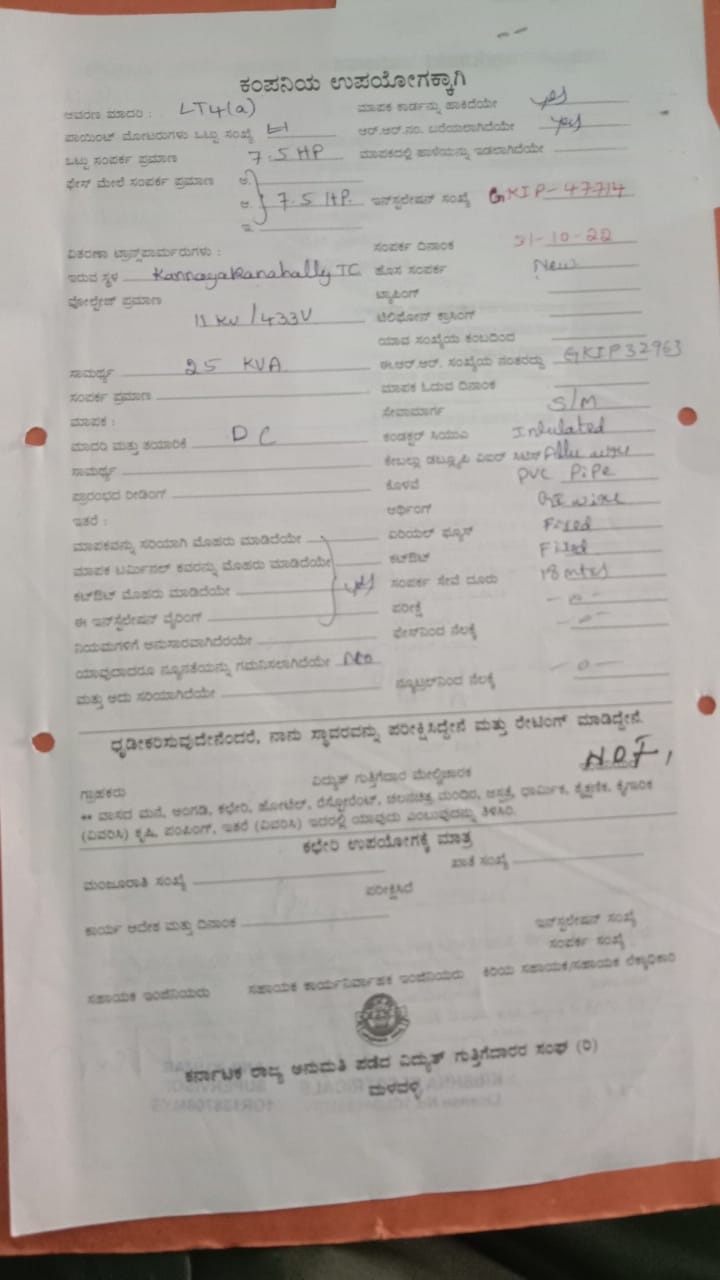 ಕಂಪನಿಯ ಉಪಯೋಗಕ್ಕಾಗಿ
ಆವರಣ ಮಾದರಿ : LT4(a) ಮಾಪಕ ಕಾರ್ಡನ್ನು ಹಾಕಿದೆಯೇ yes
ಪಾಯಿಂಟ್ ಮೋಟರುಗಳು ಒಟ್ಟು ಸಂಖ್ಯೆ ಆರ್.ಆರ್.ನಂ. ಬರೆಯಲಾಗಿದೆಯೇ yes
ಒಟ್ಟು ಸಂಪರ್ಕ ಪ್ರಮಾಣ 7.5 HP ಮಾಪಕದಲ್ಲಿ ಹಾಳೆಯನ್ನು ಇಡಲಾಗಿದೆಯೇ
ಫೇಸ್ ಮೇಲೆ ಸಂಪರ್ಕ ಪ್ರಮಾಣ ಅ.
ಆ. 7.5 HP. ಇನ್‌ಸ್ಟಲೇಷನ್ ಸಂಖ್ಯೆ GKIP-47714
ಇ.
ವಿತರಣಾ ಟ್ರಾನ್ಸ್‌ಫಾರ್ಮರುಗಳು : ಸಂಪರ್ಕ ದಿನಾಂಕ 31-10-22
ಇರುವ ಸ್ಥಳ Kannayakanahally TC ಹೊಸ ಸಂಪರ್ಕ New
ವೋಲ್ಟೇಜ್ ಪ್ರಮಾಣ ಟ್ಯಾಪಿಂಗ್
11 KV/433V ಟೆಲಿಫೋನ್ ಕ್ರಾಸಿಂಗ್
ಯಾವ ಸಂಖ್ಯೆಯ ಕಂಬದಿಂದ
ಸಾಮರ್ಥ್ಯ 25 KVA ಈ.ಆರ್.ಆರ್. ಸಂಖ್ಯೆಯ ನಂತರದ್ದು GKIP32963
ಸಂಪರ್ಕ ಪ್ರಮಾಣ ಮಾಪಕ ಓದುವ ದಿನಾಂಕ
ಮಾಪಕ : ಸೇವಾಮಾರ್ಗ S/M
ಮಾದರಿ ಮತ್ತು ತಯಾರಿಕೆ DC ಕಂಡಕ್ಟರ್ ಸಿಯುಎ Inlulated
ಸಾಮರ್ಥ್ಯ ಕೇಬಲ್ಲು ಡಬ್ಲ್ಯೂಪಿ ವಿಐಆರ್ wire
ಪ್ರಾರಂಭದ ರೀಡಿಂಗ್ ಕೊಳವೆ PVC PiPe
ಇತರೆ : ಅರ್ಥಿಂಗ್ GI wire
ಮಾಪಕವನ್ನು ಸರಿಯಾಗಿ ಮೊಹರು ಮಾಡಿದೆಯೇ ಏರಿಯಲ್ ಫ್ಯೂಸ್ Fixed
ಮಾಪಕ ಟರ್ಮಿನಲ್ ಕವರನ್ನು ಮೊಹರು ಮಾಡಿದೆಯೇ ಕಟ್‌ಔಟ್ Fixed
ಕಟ್‌ಔಟ್ ಮೊಹರು ಮಾಡಿದೆಯೇ yes ಸಂಪರ್ಕ ಸೇವೆ ದೂರು 18 mtrs
ಈ ಇನ್‌ಸ್ಟಲೇಷನ್ ವೈರಿಂಗ್ ಪರೀಕ್ಷೆ -0-
ನಿಯಮಗಳಿಗೆ ಅನುಸಾರವಾಗಿದೆರಯೇ ಫೇಸ್‌ನಿಂದ ನೆಲಕ್ಕೆ -0-
ಯಾವುದಾದರೂ ನ್ಯೂನತೆಯನ್ನು ಗಮನಿಸಲಾಗಿದೆಯೇ No
ಮತ್ತು ಅದು ಸರಿಯಾಗಿದೆಯೇ ನ್ಯೂಟ್ರಲ್‌ನಿಂದ ನೆಲಕ್ಕೆ -0-
ಧೃಡೀಕರಿಸುವುದೇನೆಂದರೆ, ನಾನು ಸ್ಥಾವರವನ್ನು ಪರೀಕ್ಷಿಸಿದ್ದೇನೆ ಮತ್ತು ರೇಟಿಂಗ್ ಮಾಡಿದ್ದೇನೆ.
ಗ್ರಾಹಕರು ವಿದ್ಯುತ್ ಗುತ್ತಿಗೆದಾರ ಮೇಲ್ವಿಚಾರಕ
** ವಾಸದ ಮನೆ, ಅಂಗಡಿ, ಕಛೇರಿ, ಹೋಟೆಲ್, ರೆಸ್ಟೋರೆಂಟ್, ಚಲನಚಿತ್ರ ಮಂದಿರ, ಆಸ್ಪತ್ರೆ, ಧಾರ್ಮಿಕ, ಶೈಕ್ಷಣಿಕ, ಕೈಗಾರಿಕ
(ವಿವರಿಸಿ) ಕೃಷಿ, ಪಂಪಿಂಗ್, ಇತರೆ (ವಿವರಿಸಿ) ಇದರಲ್ಲಿ ಯಾವುದು ಎಂಬುವುದನ್ನು ತಿಳಿಸಿರಿ.
ಕಛೇರಿ ಉಪಯೋಗಕ್ಕೆ ಮಾತ್ರ
ಮಂಜೂರಾತಿ ಸಂಖ್ಯೆ ಖಾತೆ ಸಂಖ್ಯೆ
ಪರೀಕ್ಷಿಸಿದೆ
ಕಾರ್ಯ ಆದೇಶ ಮತ್ತು ದಿನಾಂಕ ಇನ್‌ಸ್ಟಲೇಷನ್ ಸಂಖ್ಯೆ
ಸಂಪರ್ಕ ಸಂಖ್ಯೆ
ಸಹಾಯಕ ಇಂಜಿನಿಯರು ಸಹಾಯಕ ಕಾರ್ಯನಿರ್ವಾಹಕ ಇಂಜಿನಿಯರು ಕಿರಿಯ ಸಹಾಯಕ/ಸಹಾಯಕ ಲೆಕ್ಕಾಧಿಕಾರಿ
ಕರ್ನಾಟಕ ರಾಜ್ಯ ಅನುಮತಿ ಪಡೆದ ವಿದ್ಯುತ್ ಗುತ್ತಿಗೆದಾರರ ಸಂಘ (ರಿ)
ಮಳವಳ್ಳಿ